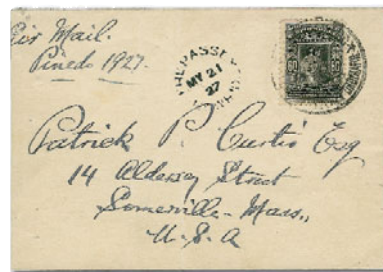 Air Mail.
Pinedo 1927.
TREPASSEY
MY 21
27
60 60
Patrick P. Curtis Esq
14 Aldersey Street
Somerville - Mass.,
U.S.A